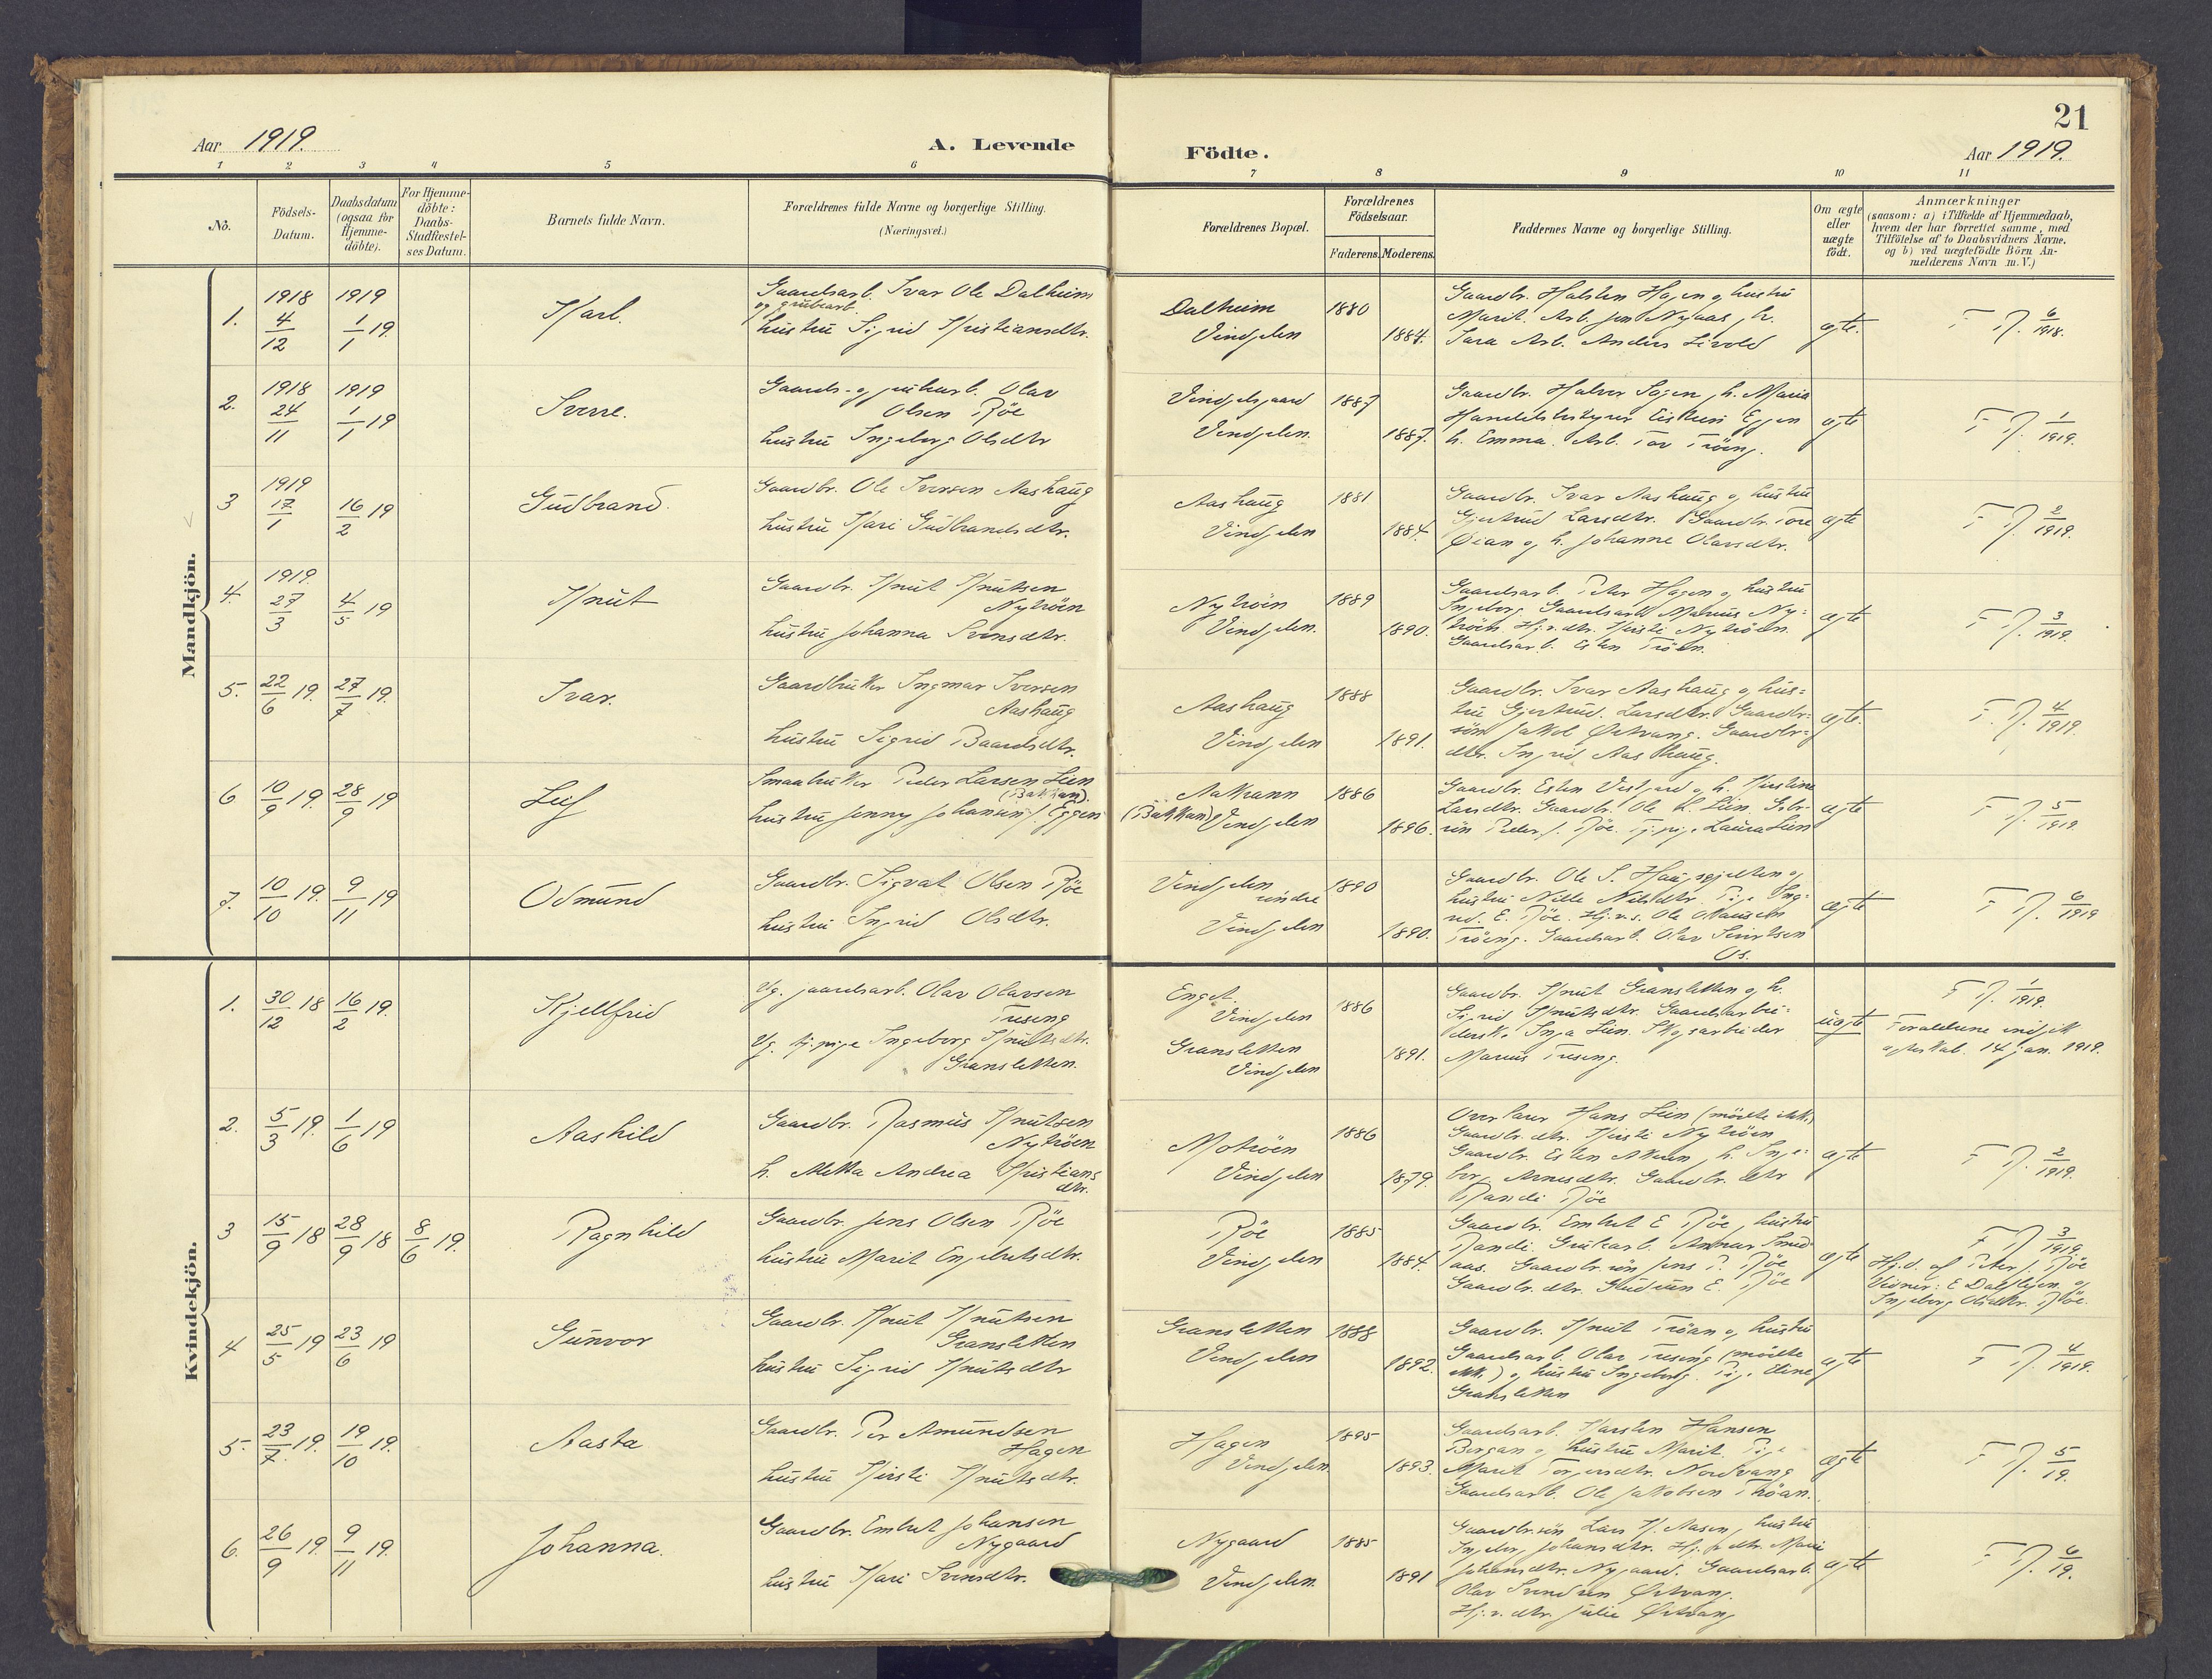 21
Aar 1919.
A. Levende
Födte.
Aar 1919.
1 2 3 4 5 6 7 8 9 10 11
No.
Födsels-
Datum.
Daabsdatum
(ogsaa for
Hjemme-
döbte).
For Hjemme-
döbte:
Daabs-
Stadfæstel-
ses Datum.
Barnets fulde Navn.
Forældrenes fulde Navne og borgerlige Stilling.
(Næringsvei.)
Forældrenes Bopæl.
Forældrenes
Födselsaar.
Faderens. Moderens.
Faddernes Navne og borgerlige Stilling.
Om ægte
eller
uægte
födt.
Anmærkninger
(saasom: a) i Tilfælde af Hjemmedaab,
hvem der har forrettet samme, med
Tilföielse af to Daabsvidners Navne.
og b) ved uægtefödte Börn An-
melderens Navn m. V.)
Mandkjön.
1.
1918
4/12
1919
1/1 19.
Karl.
Gaardsarb. Ivar Ole Dalheim
og grubearb.
hustru Sigrid Kristiansdtr.
Dalheim
Vingelen
1880
1884.
Gaardbr. Halsten Hagen og hustru
Marit. Arb. Jon Nyaas, h.
Sara Arb. Anders Livold
ægte.
F. R. 6/1918.
2.
1918
24/11
1919
1/1 19
Sverre.
Gaards- og grubearb. Olav
Olsen Röe
hustru Ingeborg Olsdtr
Vingelsgaard
Vingelen.
1887
1887.
Gaardbr. Halvor Sagen, h. Marie
Handelsbestyrer Eistein Eggen
h. Emma. Arb. Tor Tröeng.
ægte
F. R. 1/1919.
3
1919
17/1
16/2 19
Gudbrand.
Gaardbr. Ole Iversen Aashaug
hustru Kari Gudbrandsdtr.
Aashaug
Vingelen
1881
1884.
Gaardbr. Ivar Aashaug og hustru
Gjertrud Larsdtr. Gaardbr. Tore
Öian og h. Johanne Olavsdtr.
ægte
F. R. 2/1919.
4.
1919.
27/3
4/5 19
Knut
Gaardbr. Knut Knutsen
Nytröen
hustru Johanna Svensdtr.
Nytröen
Vingelen.
1889
1890.
Gaardsarb. Peter Hagen og hustru
Ingeborg. Gaardsarb. Marius Ny-
tröen. Hj.v.dtr. Kirsti Nytröen.
Gaardsarb. Esten Tröen.
ægte
F. R. 3/1919.
5.
22/6 19.
27/7 19.
Ivar.
Gaardbruker Ingmar Iversen
Aashaug
hustru Sigrid Baardsdtr.
Aashaug
Vingelen
1888
1891.
Gaardbr. Ivar Aashaug og hus-
tru Gjertrud. Larsdtr. Gaardbr-
sön Jakob Östvang. Gaardbr-
dtr. Ingrid Aashaug.
ægte.
F. R. 4/1919.
6
10/9 19.
28/9 19
Leif
Smaabruker Peder Larsen Lien
(Bakkan).
hustru Jenny Johansen f. Eggen
Aakrann
(Bakkan) Vingelen
1886
1896.
Gaardbr. Esten Vestgard og h. Kirstine
Larsdtr. Gaardbr. Ole L. Lien G.br-
sön Peder J. Röe. Tj.pige Laura Lien
ægte
F. R. 5/1919.
7.
10/10 19.
9/11 19
Odmund
Gaardbr. Sigvat Olsen Röe
hustru Ingrid Olsdtr.
Vingelen
undre
Vingelen
1890
1890.
Gaardbr. Ole S. Haugsgjelten og
hustru Nille Nilsdtr. Pige Ing-
rid E. Röe. Hj.v.s. Ole Olaussen
Tröeng. Gaardsarb. Olav Sivertsen
Os.
ægte
F. R. 6/1919
Kvindekjön.
1.
30/12 18
16/2 19.
Kjellfrid
Ug. gaardsarb. Olav Olavsen
Tuseng
Ug. tj.pige Ingeborg Knutsdtr.
Gransletten.
Enget.
Vingelen
Gransletten
Vingelen
1886
1891.
Gaardbr. Knut Gransletten og h.
Sigrid Knutsdtr. Gaardsarbei-
derske Inga Lien. Skogsarbeider
Marius Tuseng.
uægte
F. R. 1/1919.
Forældrene indgik
egteskab. 14 jan. 1919.
2.
5/3 19.
1/6 19
Aashild
Gaardbr. Rasmus Knutsen
Nytröen
h. Mekka Andrea Kristians
dtr.
Motröen
Vingelen
1886
1879.
Overlærer Hans Lien (mötte ikke)
Gaardbr.dtr. Kirsti Nytröen
Gaardbr. Esten Akran, h. Inge-
borg Arnesdtr. Gaardbr.dtr
Randi Röe
ægte
F. R. 2/1919.
3
15/9 18
28/9 18
8/6 19.
Ragnhild
Gaardbr. Jens Olsen Röe
hustru Marit Engebretsdtr.
Röe
Vingelen
1885
1884.
Gaardbr. Embret E Röe, hustru
Randi. Grubearb. Annar Smed-
aas. Gaardbr.sön Jens P. Röe
Gaardbr.dtr. Gudrun E. Röe
ægte
F. R. 3/1919.
Hj.d. af Peter J. Röe
Vidner: E Dalslegen og
Ingeborg Olsdtr. Röe.
4
25/5 19
23/6 19
Gunvor
Gaardbr. Knut Knutsen
Gransletten
hustru Sigrid Knutsdtr
Gransletten
Vingelen
1888
1892.
Gaardbr. Knut Tröan og hustru
Gaardsarb. Olav Tuseng (mötte
ikke) og hustru Ingeborg. Pige Eline
Gransletten
ægte
F. R. 4/1919.
5.
23/7 19.
19/10 19.
Aasta
Gaardbr. Per Amundsen
Hagen
hustru Kirsti Knutsdtr.
Hagen
Vingelen.
1895
1893.
Gaardsarb. Karsten Hansen
Bergan og hustru Marit. Pige
Marit Torgersdtr. Nordvang
Gaardsarb. Ole Jakobsen Tröan.
ægte
F. R. 5/19.
6.
26/9 19.
9/11 19.
Johanna.
Gaardbr. Embret Johansen
Nygaard
hustru Kari Svensdtr.
Nygaard
Vingelen.
1885
1891
Gaardbr.sön Lars K. Aasen, hustru
Ingeborg Johansdtr. Hj. dtr. Marie
Johansdtr. Nygaard. Gaardsarb.
Olav Svendsen Östvang.
Hj.v.dtr. Julie Östvang
ægte
F. R. 6/19.